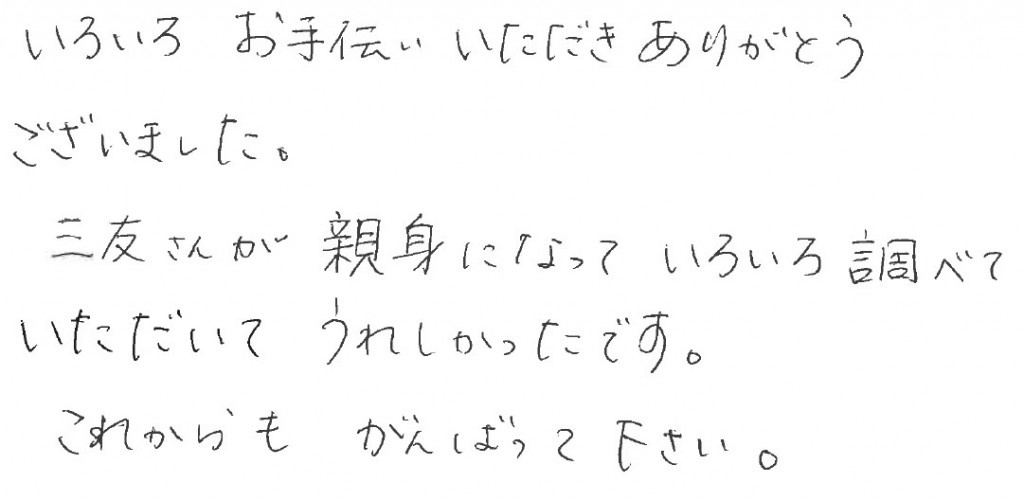 いろいろ お手伝い いただき ありがとう
ございました。
三友さんが 親身になって いろいろ 調べて
いただいて うれしかったです。
これからも がんばって 下さい。